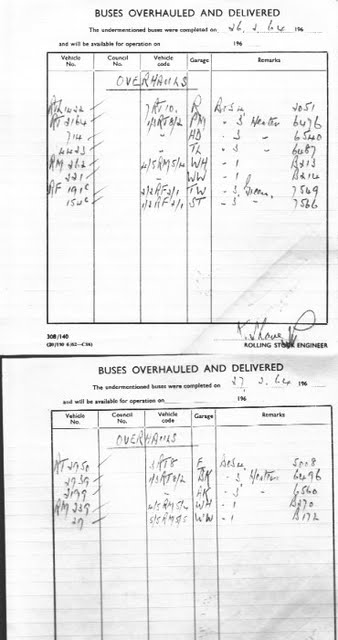 BUSES OVERHAULED AND DELIVERED
The undermentioned buses were completed on 26. 2. 64 196
and will be available for operation on 196
Vehicle No. Council No. Vehicle code Garage Remarks
OVERHAULS
7RT10 R Body 2051
RT 2164 PM - 3 Heater 6476
714 " HD - 3 " 6540
4423 " TL - 3 " 6487
RM 262 4/5RM5/4 WH - 1 B213
221 " WW - 1 B214
RF 191c 2/2RF2/1 TW - 3 7549
154c 1/2RF2/1 ST - 3 " 7566
308/140
ROLLING STOCK ENGINEER
BUSES OVERHAULED AND DELIVERED
The undermentioned buses were completed on 27. 2. 64 196
and will be available for operation on 196
Vehicle No. Council No. Vehicle code Garage Remarks
OVERHAULS
RT 2950 3RT8 E Body 5008
2939 1/3RT8/2 BK - 3 Heater 6496
2199 " AK - 3 " 6560
RM 239 4/5RM5/4 WH - 1 B270
29 5/5RM5/5 WW - 1 B172